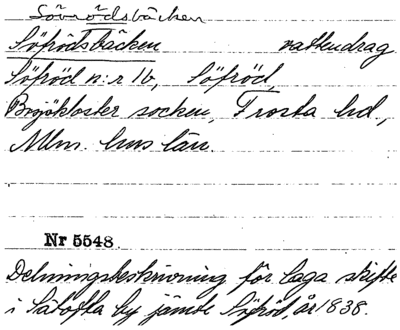 Sövrödsbäcken
Söfrödsbäcken vattendrag
Söfröd n:r 1b, Söfröd,
Bosjökloster socken, Frosta hd.,
Mlm. hus län.
Nr 5548.
Delningsbeskrivning för laga skifte
i Sätofta by jämte Söfröd, år 1838.